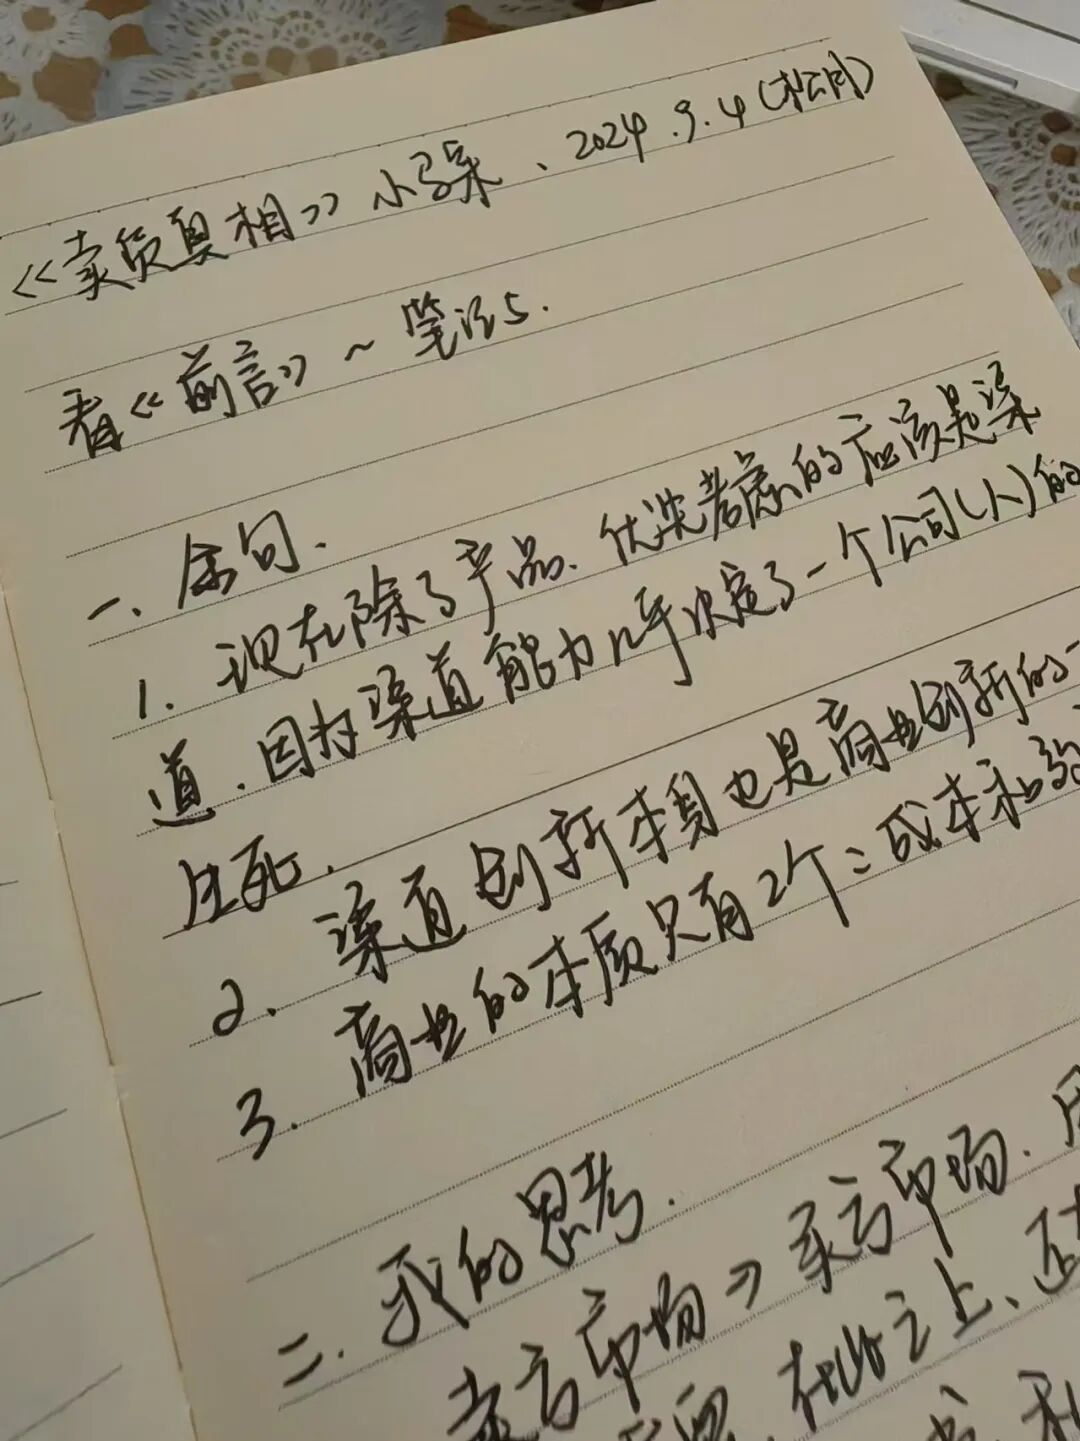 《卖货真相》小马宋、2024.9.4(松月)
看《前言》~笔记5.
一、金句.
1. 现在除了产品、优先考虑的应该是渠
道.因为渠道能力几乎决定了一个公司(人)的
生死.
2. 渠道创新本身也是商业创新的一
3. 商业的本质只有2个:成本和效
二. 我的思考.
卖方市场 → 买方市场.
在此之上、还